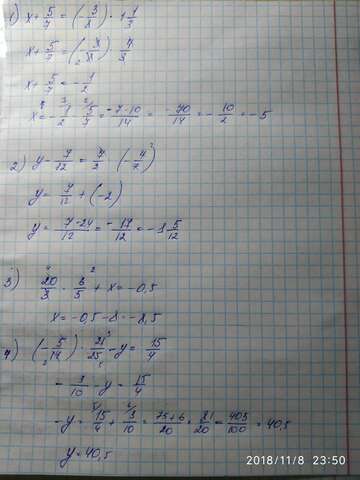 1) x + 5/7 = (-3/8) · 1 1/3
x + 5/7 = (-3/8) · 4/3
x + 5/7 = -1/2
x = -1/2 - 5/7 = -7-10/14 = -70/14 = -10/2 = -5
2) y - 7/12 = 7/2 · (-4/7)
y = 7/12 + (-2)
y = 7-24/12 = -17/12 = -1 5/12
3) 20/3 · 6/5 + x = -0,5
x = -0,5 - 8 = -8,5
4) (-5/14) · 21/25 - y = 15/4
- 3/10 - y = 15/4
-y = 15/4 + 3/10 = 75+6/20 = 81/20 = 405/100 = 40,5
y = 40,5
2018/11/8 23:50